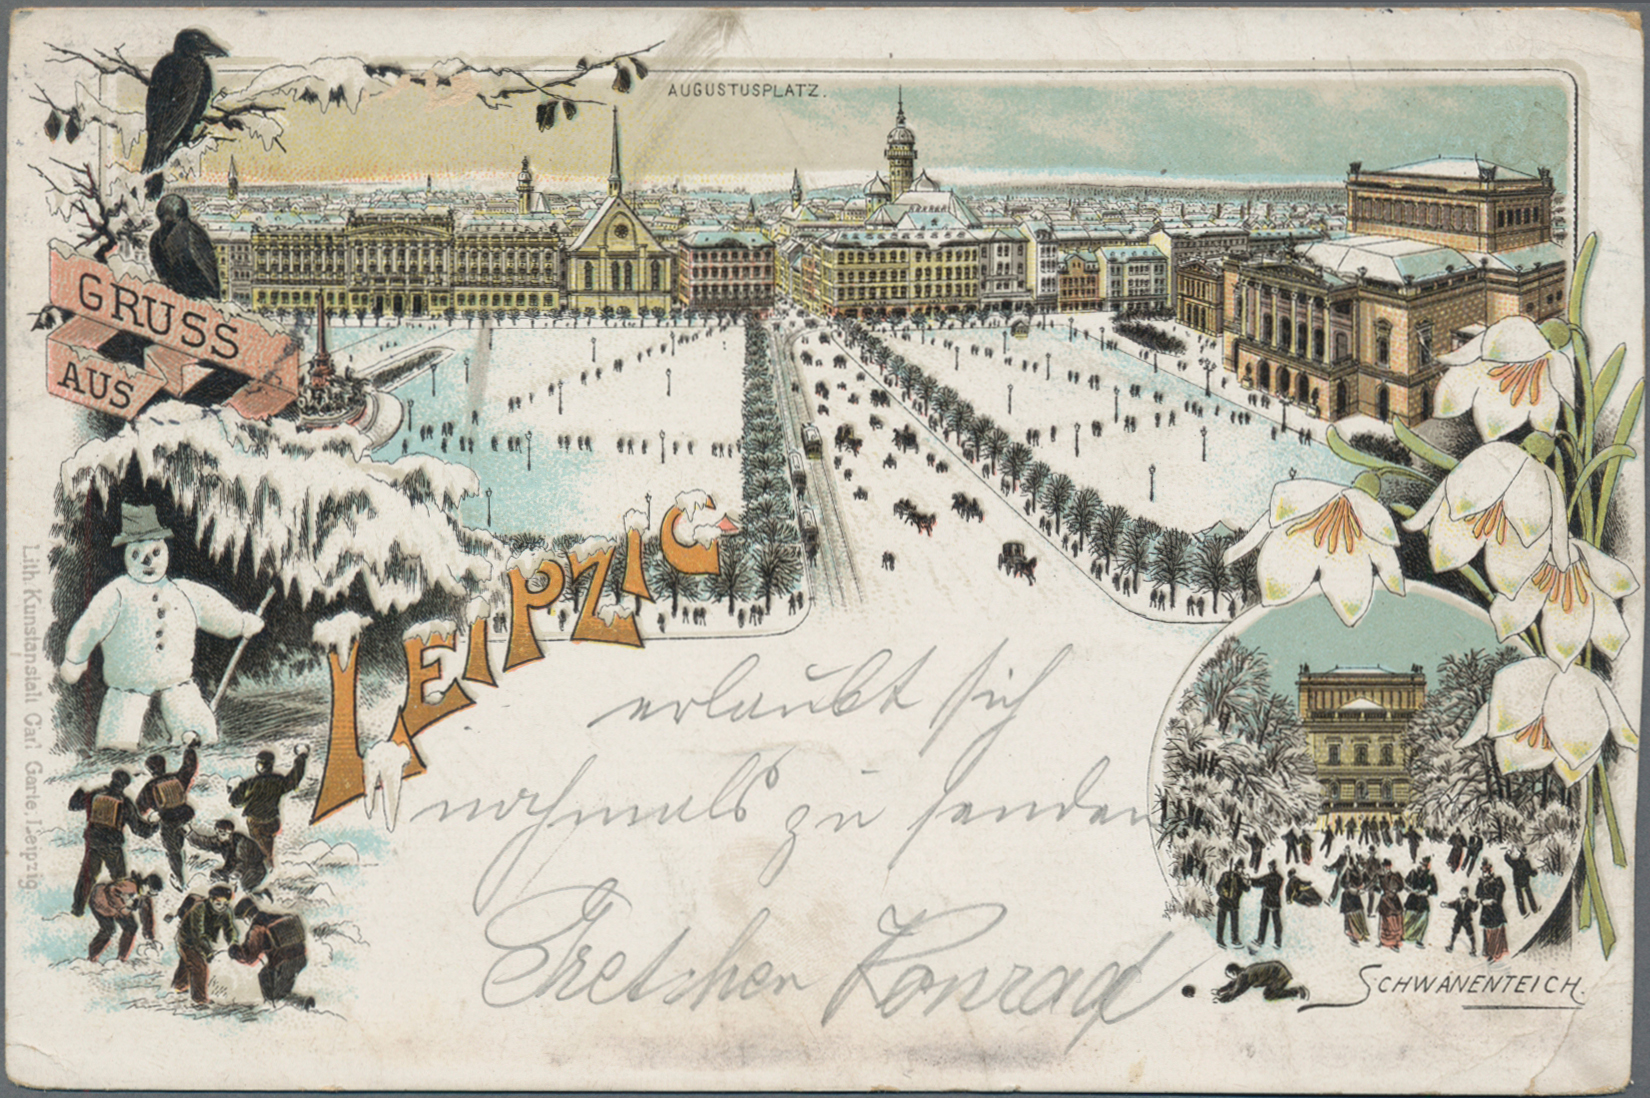 AUGUSTUSPLATZ.
GRUSS
AUS
LEIPZIG
erlaubt sich
nochmals zu senden
Gretchen Konrad
SCHWANENTEICH.
Lith. Kunstanstalt Carl Garte, Leipzig.